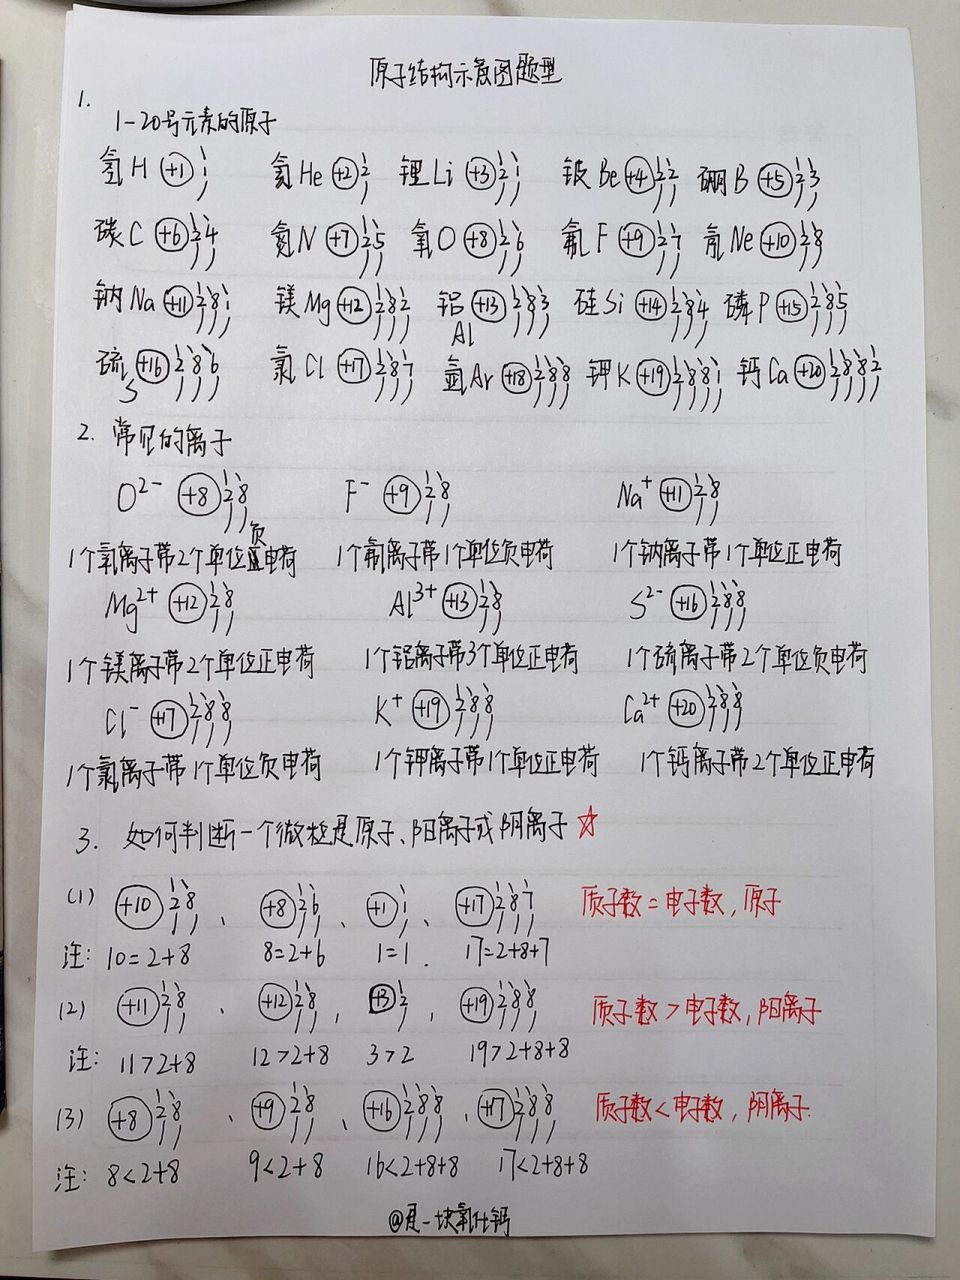 原子结构示意图题型
1.
1-20号元素的原子
氢 H +1 1 氦 He +2 2 锂 Li +3 2 1 铍 Be +4 2 2 硼 B +5 2 3
碳 C +6 2 4 氮 N +7 2 5 氧 O +8 2 6 氟 F +9 2 7 氖 Ne +10 2 8
钠 Na +11 2 8 1 镁 Mg +12 2 8 2 铝 Al +13 2 8 3 硅 Si +14 2 8 4 磷 P +15 2 8 5
硫 S +16 2 8 6 氯 Cl +17 2 8 7 氩 Ar +18 2 8 8 钾 K +19 2 8 8 1 钙 Ca +20 2 8 8 2
2. 常见的离子
O²⁻ +8 2 8 F⁻ +9 2 8 Na⁺ +11 2 8
1个氧离子带2个单位负电荷 1个氟离子带1个单位负电荷 1个钠离子带1个单位正电荷
Mg²⁺ +12 2 8 Al³⁺ +13 2 8 S²⁻ +16 2 8 8
1个镁离子带2个单位正电荷 1个铝离子带3个单位正电荷 1个硫离子带2个单位负电荷
Cl⁻ +17 2 8 8 K⁺ +19 2 8 8 Ca²⁺ +20 2 8 8
1个氯离子带1个单位负电荷 1个钾离子带1个单位正电荷 1个钙离子带2个单位正电荷
3. 如何判断一个微粒是原子、阳离子或阴离子☆
(1) +10 2 8 、 +8 2 6 、 +1 1 、 +17 2 8 7 质子数=电子数,原子
注: 10=2+8 8=2+6 1=1. 17=2+8+7
(2) +11 2 8 、 +12 2 8 , +3 2 , +19 2 8 8 质子数>电子数,阳离子
注: 11>2+8 12>2+8 3>2 19>2+8+8
(3) +8 2 8 、 +9 2 8 、 +16 2 8 8 、 +17 2 8 8 质子数<电子数,阴离子.
注: 8<2+8 9<2+8 16<2+8+8 17<2+8+8
@是一块氧化钙